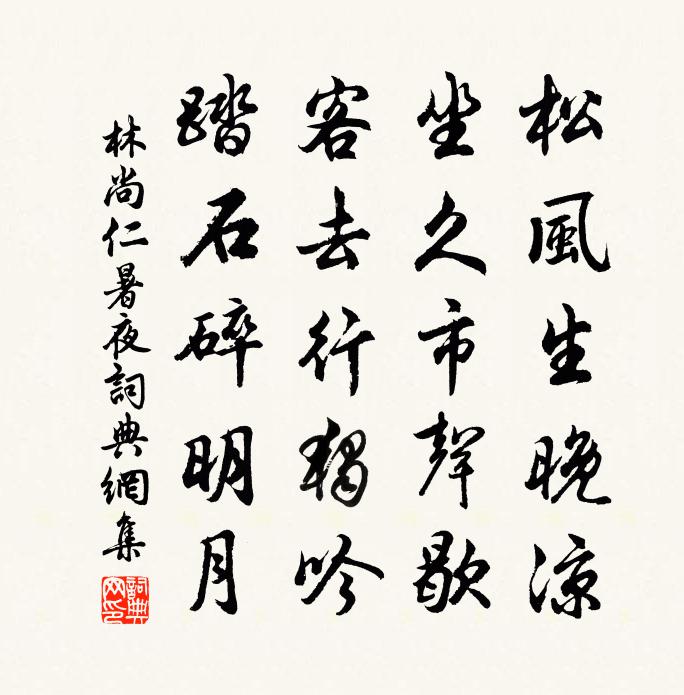 松風生晚涼
坐久市聲歇
客去行獨吟
踏石碎明月
林尚仁暑夜詞典網集
詞典網印